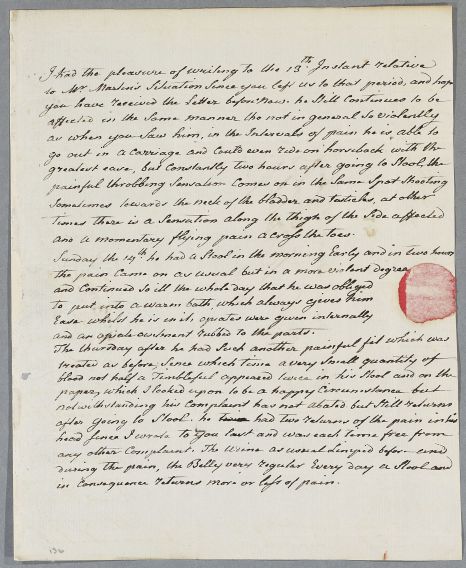 I had the pleasure of writing to the 13th Instant relative
to Mr. Martin's Situation Since you left us to that period, and hope
you have received the Letter before now. he Still Continues to be
affected in the Same manner tho not in general So violently
as when you Saw him, in the Intervals of pain he is able to
go out in a Carriage and Could even ride on horseback with the
greatest ease, but Constantly two hours after going to Stool, the
painful throbbing Sensation Comes on in the Same Spot Shooting
Sometimes towards the neck of the bladder and testicles, at other
times there is a Sensation along the thigh of the Side affected
and a momentary flying pain across the toes.
Sunday the 14th he had a Stool in the morning Early and in two hours
the pain Came on as usual but in a more violent degree
and Continued So ill the whole day that he was obliged
to put into a warm bath which always gives him
Ease whilst he is in it, opiates were given internally
and an opiate ointment rubbed to the parts.
The thursday after he had Such another painful fit which was
treated as before, Since which time a very Small quantity of
blood not half a Timbleful appeared twice in his Stool and on the
paper, which I looked upon to be a happy Circumstance but
notwithstanding his Complaint has not abated but Still returns
after going to Stool. he had two returns of the pain in his
head Since I wrote to you last and was each time free from
any other Complaint. The Urine as usual Limped before and
during the pain, the Belly very regular Every day a Stool and
in Consequence returns more or less of pain.
136